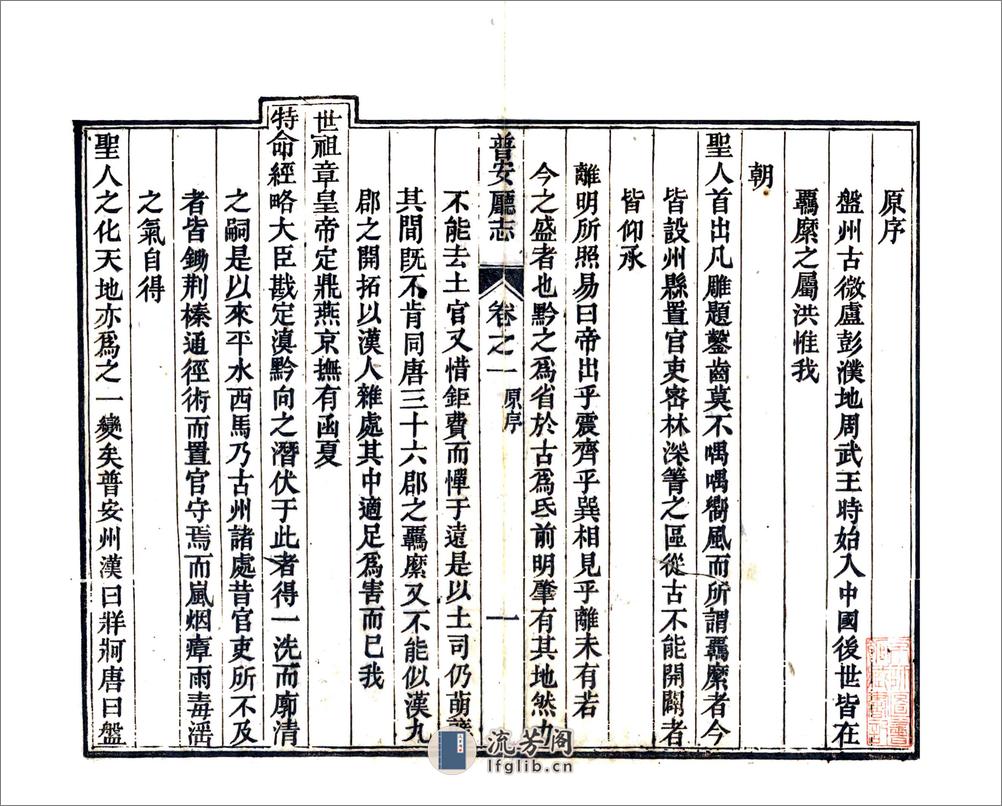 原序
盤州古微盧彭濮地周武王時始入中國後世皆在
羈縻之屬洪惟我
朝
聖人首出凡雕題鑿齒莫不喁喁嚮風而所謂羈縻者今
皆設州縣置官吏密林深箐之區從古不能開闢者
皆仰承
離明所照易曰帝出乎震齊乎巽相見乎離未有若
今之盛者也黔之為省於古為氐前明肇有其地然九
普安廳志 卷之一 原序 一
不能去土官又惜鉅費而憚于遠是以土司仍萌
其間既不肯同唐三十六郡之羈縻又不能似漢九
郡之開拓以漢人雜處其中適足為害而已我
世祖章皇帝定鼎燕京撫有函夏
特命經略大臣戡定滇黔向之潛伏于此者得一洗而廓清
之嗣是以來平水西馬乃古州諸處昔官吏所不及
者皆鋤荆榛通徑術而置官守焉而嵐烟瘴雨毒淫
之氣自得
聖人之化天地亦為之一變矣普安州漢曰牂牁唐曰盤
流芳阁
lfglib.cn